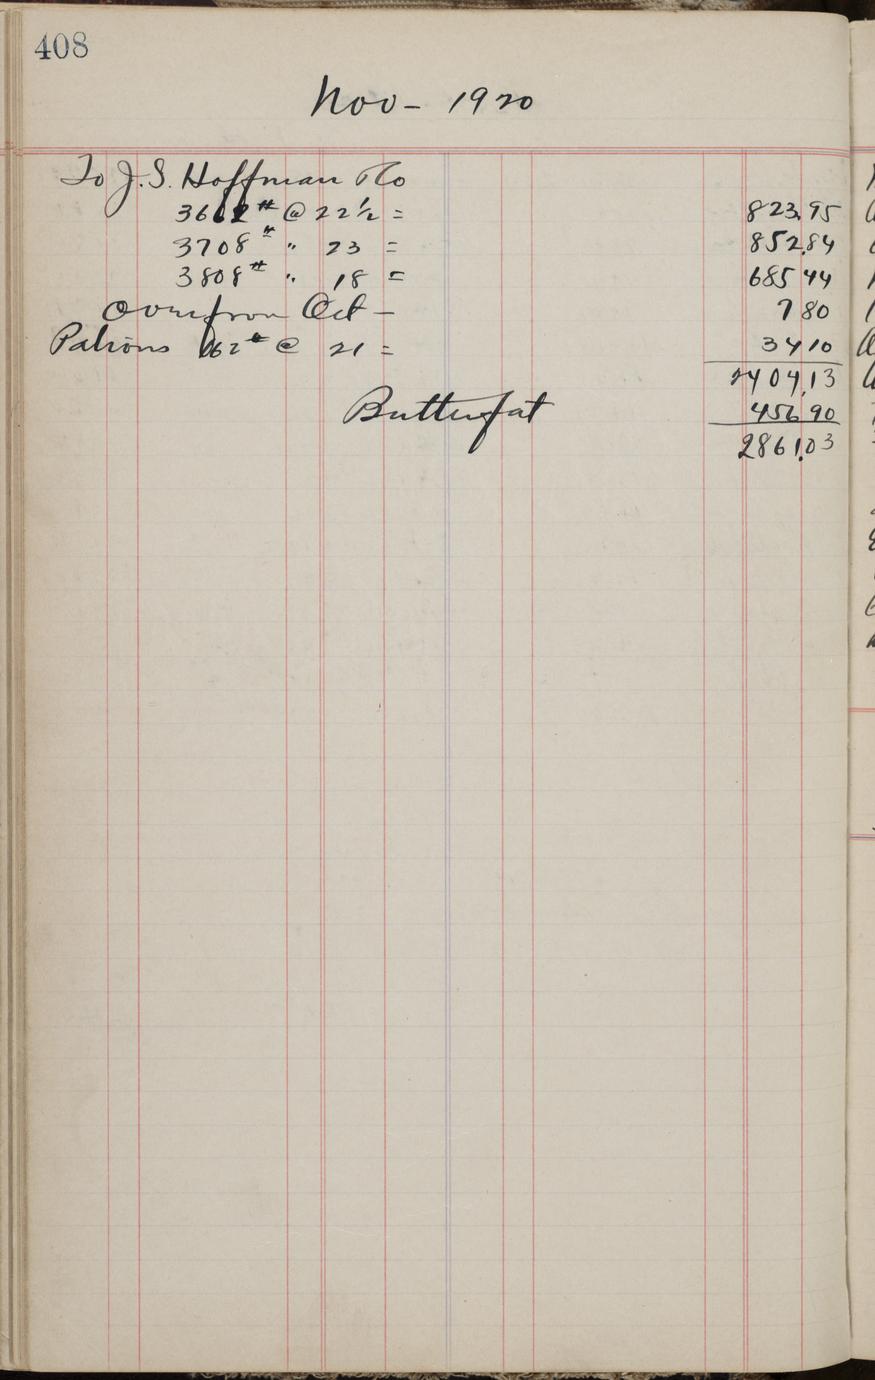 408
Nov - 1920
To J.S. Hoffman Co
3662 # @ 22 ½ = 823.95
3708 # " 23 = 852.84
3808 # " 18 = 685 44
Over from Oct - 7 80
Patrons 162 # @ 21 = 34 10
2404.13
Butterfat 456 90
2861.03